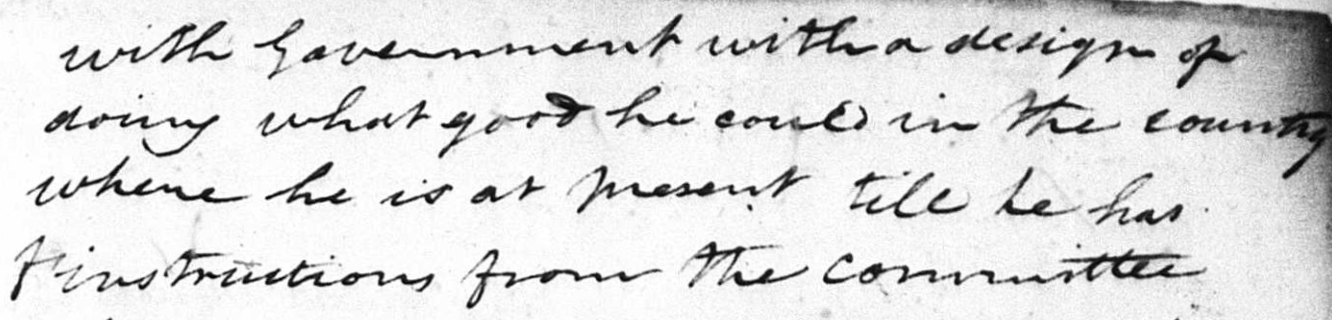 with Government with a design of
doing what good he could in the country
where he is at present till he has
instructions from the Committee